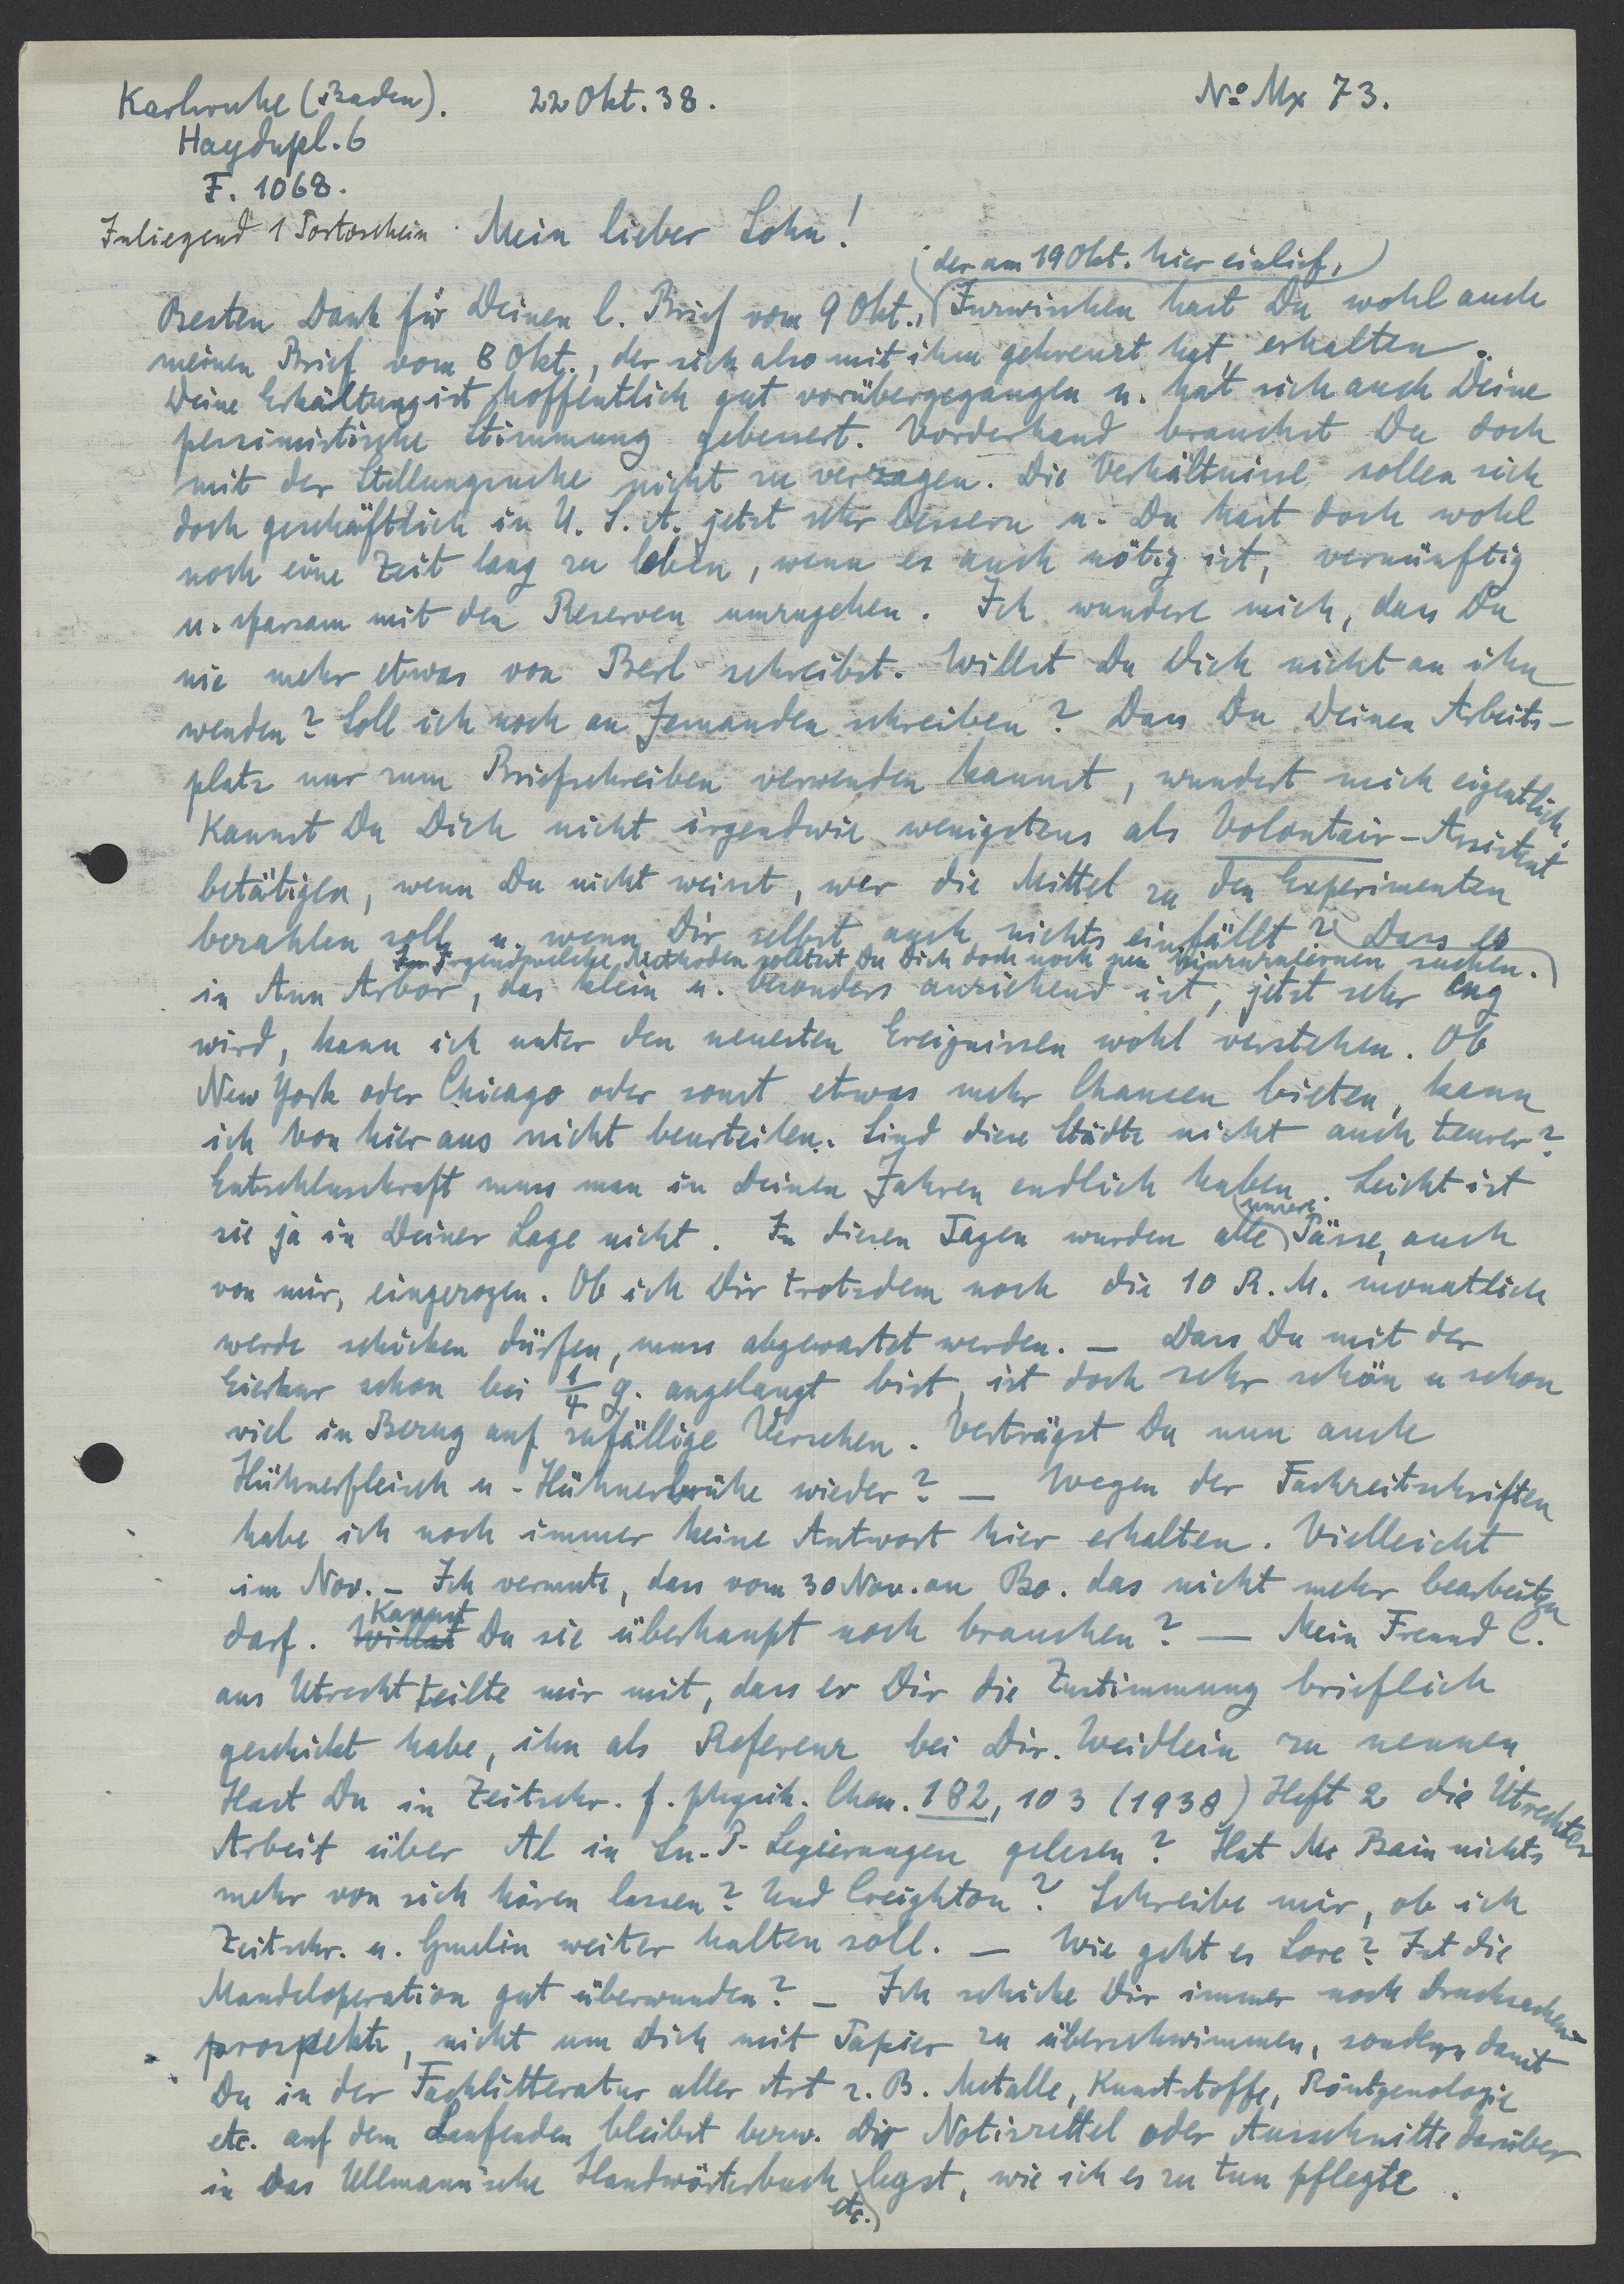 Karlsruhe (Baden). 22 Okt. 38. No Mx 73.
Haydnpl. 6
F. 1068.
Inliegend 1 Portoschein. Mein lieber Sohn!
(der am 19 Okt. hier einlief,)
Besten Dank für Deinen l. Brief vom 9 Okt., Inzwischen hast Du wohl auch
meinen Brief vom 8 Okt., der sich also mit ihm gekreuzt hat, erhalten.
Deine Erkältung ist hoffentlich gut vorübergegangen u. hat sich auch Deine
pessimistische Stimmung gebessert. Vorderhand brauchst Du doch
mit der Stellungsuche nicht zu verzagen. Die Verhältnisse sollen sich
doch geschäftlich in U. S. A. jetzt sehr bessern u. Du hast doch wohl
noch eine Zeit lang zu leben, wenn es auch nötig ist, vernünftig
u. sparsam mit den Reserven umzugehen. Ich wundere mich, dass Du
nie mehr etwas von Berl schreibst. Willst Du Dich nicht an ihn
wenden? Soll ich noch an Jemanden schreiben? Dass Du Deinen Arbeits-
platz nur zum Briefschreiben verwenden kannst, wundert mich eigentlich.
Kannst Du Dich nicht irgendwie wenigstens als Volontair-Assistent
betätigen, wenn Du nicht weisst, wer die Mittel zu den Experimenten
bezahlen soll u. wenn Dir selbst auch nichts einfällt? Dass es
Irgendwelche Methoden solltest Du Dich doch noch neu hinzuzulernen suchen.
in Ann Arbor, das klein u. besonders anziehend ist, jetzt sehr eng
wird, kann ich unter den neuesten Ereignissen wohl verstehen. Ob
New York oder Chicago oder sonst etwas mehr Chancen bieten, kann
ich von hier aus nicht beurteilen. Sind diese Städte nicht auch teurer?
Entschlusskraft muss man in Deinen Jahren endlich haben. Leicht ist
sie ja in Deiner Lage nicht. In diesen Tagen wurden alle unsere Pässe, auch
von mir, eingezogen. Ob ich Dir trotzdem noch die 10 R. M. monatlich
werde schicken dürfen, muss abgewartet werden. — Dass Du mit der
Eierkur schon bei 1/4 g. angelangt bist, ist doch sehr schön u schon
viel in Bezug auf zufällige Versehen. Verträgst Du nun auch
Hühnerfleisch u - Hühnerbrühe wieder? — Wegen der Fachzeitschriften
habe ich noch immer keine Antwort hier erhalten. Vielleicht
im Nov. — Ich vermute, dass vom 30 Nov. an Bo. das nicht mehr bearbeiten
darf. Willst Kannst Du sie überhaupt noch brauchen? — Mein Freund C.
aus Utrecht teilte mir mit, dass er Dir die Zustimmung brieflich
geschickt habe, ihn als Referenz bei Dir. Weidlein zu nennen.
Hast Du in Zeitschr. f. physik. Chem. 182, 103 (1938) Heft 2 die Utrechter
Arbeit über Al in Sn-P-Legierungen gelesen? Hat Mc Bain nichts
mehr von sich hören lassen? Und Creighton? Schreibe mir, ob ich
Zeitschr. u. Gmelin weiter halten soll. — Wie geht es Lore? Ist die
Mandeloperation gut überwunden? — Ich schicke Dir immer noch Drucksachen-
prospekte, nicht um Dich mit Papier zu überschwimmen, sondern damit
Du in der Fachlitteratur aller Art z. B. Metalle, Kunststoffe, Röntgenologie
etc. auf dem Laufenden bleibst bezw. Dir Notizzettel oder Ausschnitte darüber
in das Ullmann'sche Handwörterbuch etc. legst, wie ich es zu tun pflegte.